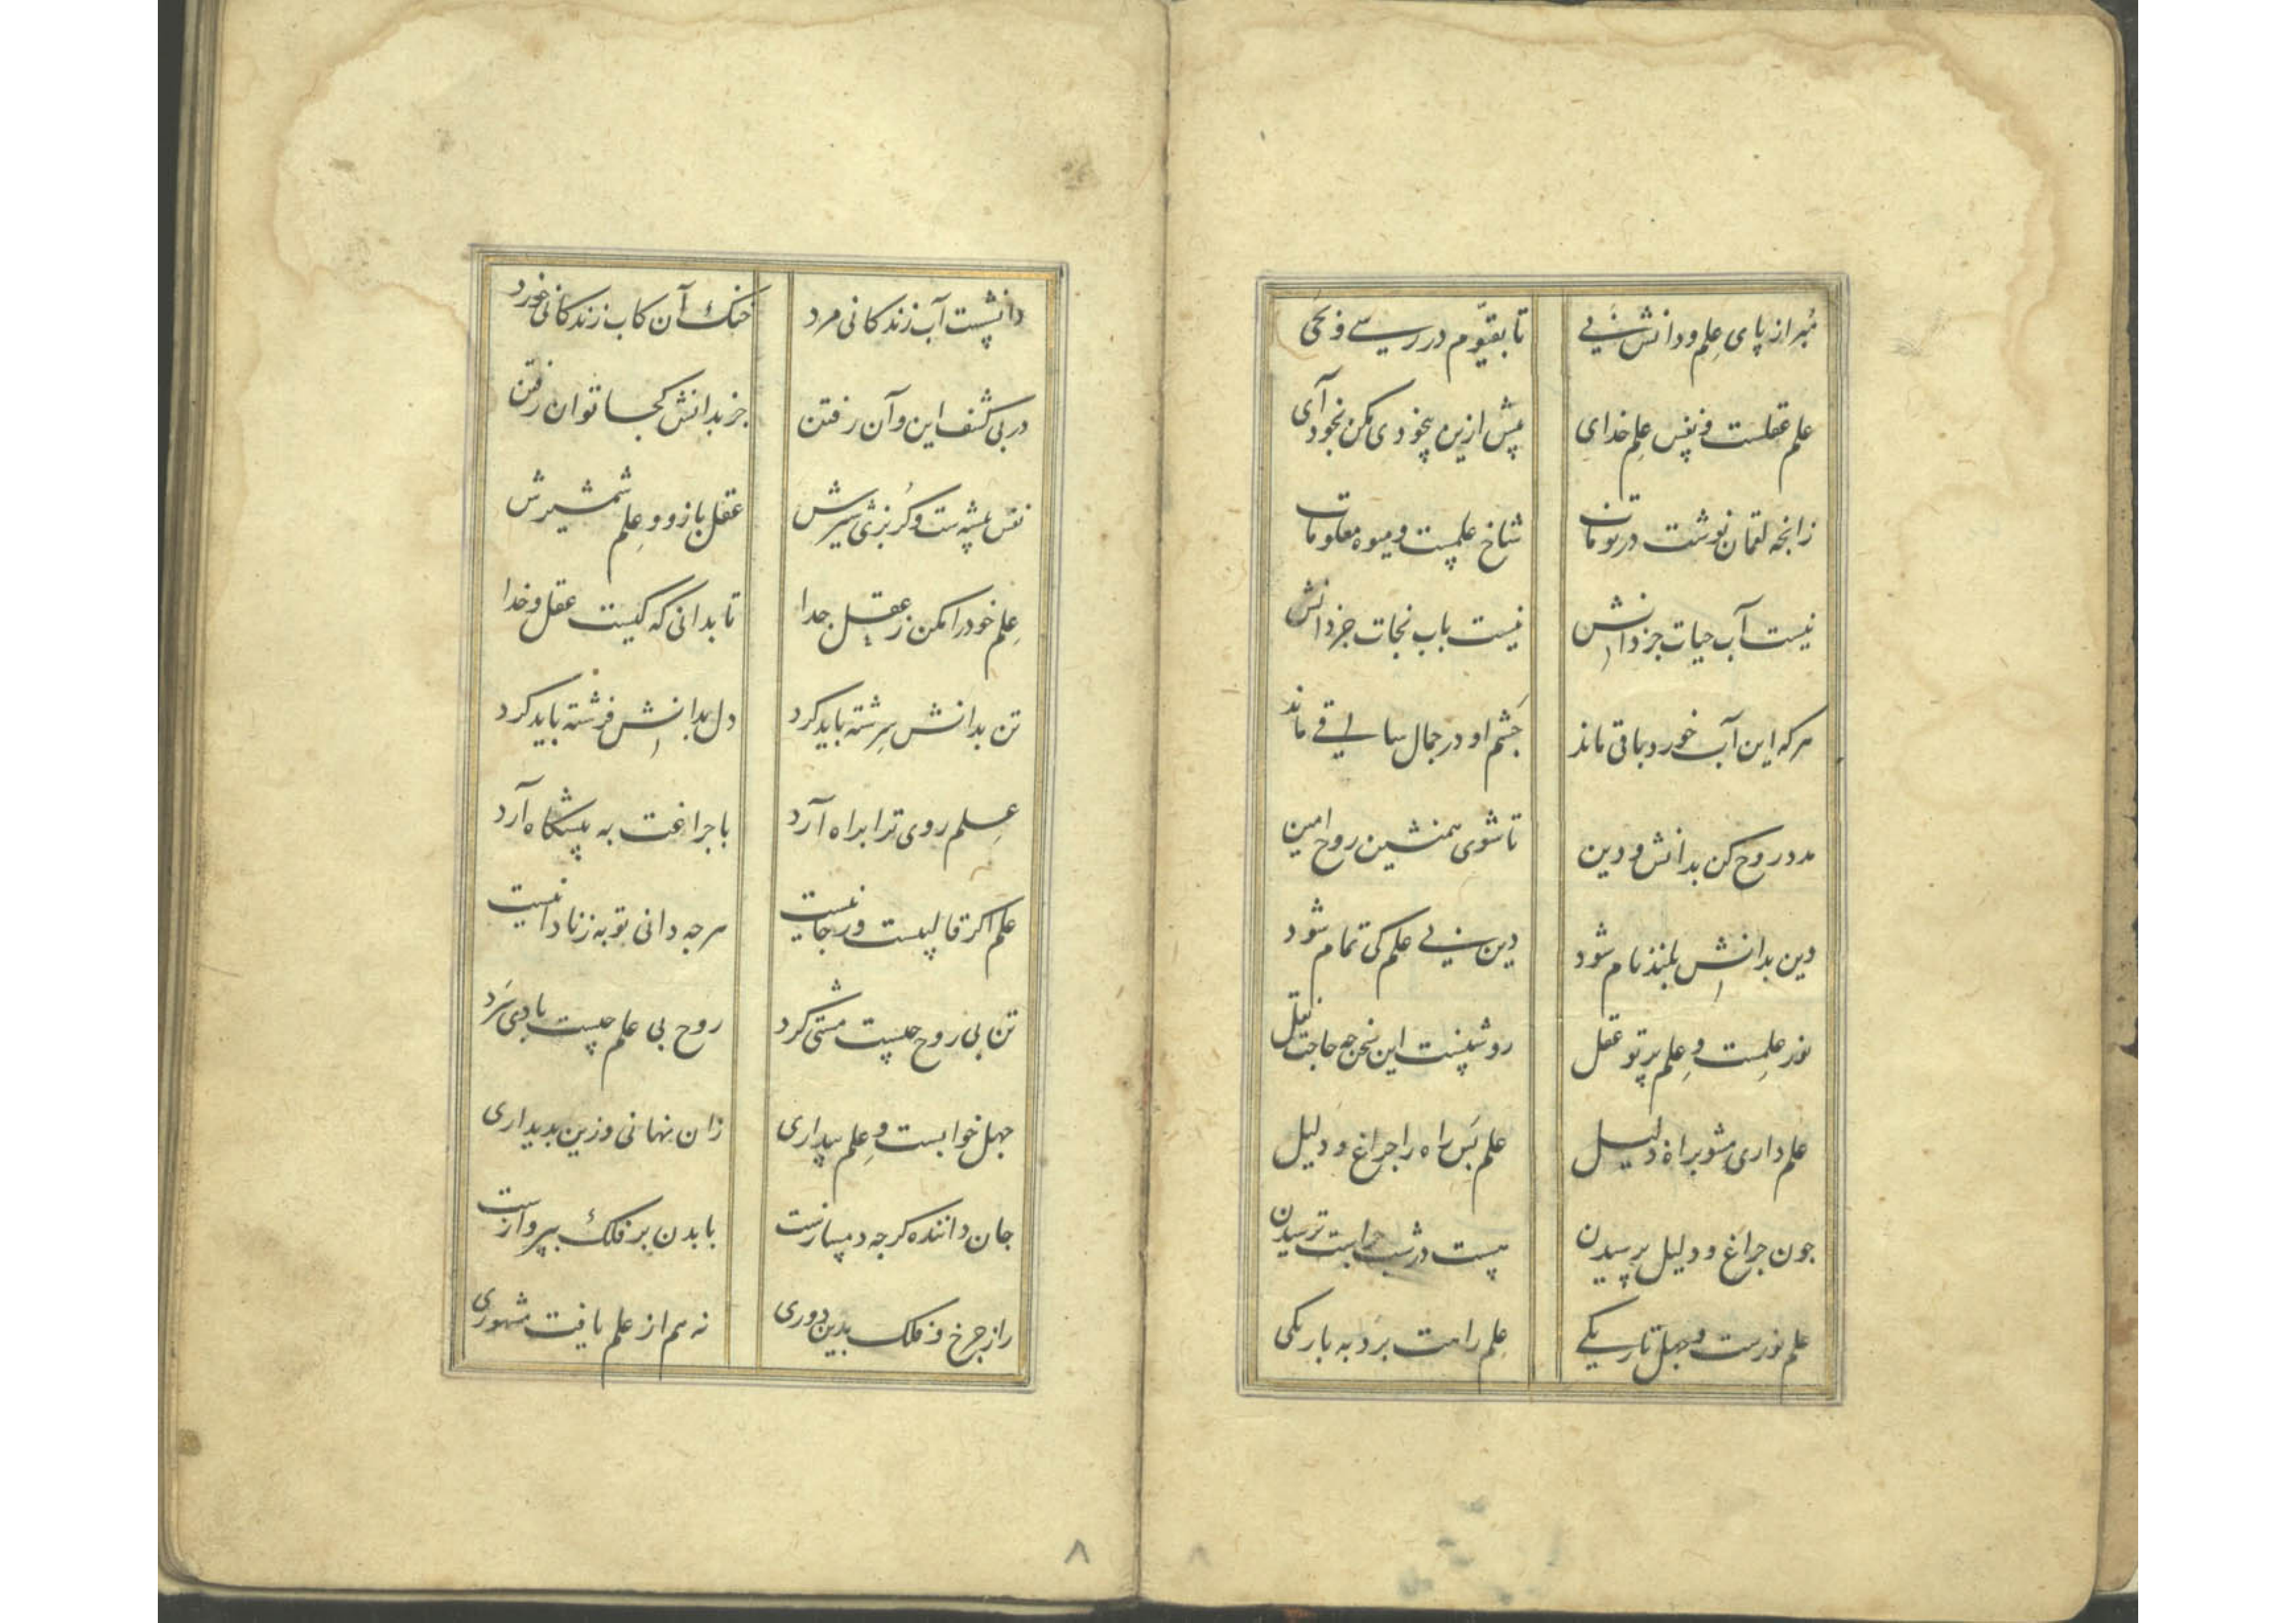 مبر از پای علم و دانش پی تا بقیوم در رسی و بحی
علم عقلست و نفس علم خدای بیش ازین بیخودی مکن بخود آی
زانچه لقمان نوشت در تومات شاخ علمست و میوه معلومات
نیست آب حیات جز دانش نیست باب نجات جز دانش
هر که این آب خورد باقی ماند چشم او در جمال ساقی ماند
مدد روح کن بدانش و دین تا شوی همنشین روح امین
دین بدانش بلند نام شود دین بی علم کی تمام شود
نور علمست و علم پرتو عقل روشنست این سخن چه حاجت نقل
علم داری مشو براه ذلیل علم بس راه را چراغ و دلیل
جون جراغ و دلیل پرسیدن نیست در شب ترسیدن
علم نورست و جهل تاریکی علم راهت برد به باریکی
دانشست آب زندکانی مرد خنک آن کاب زندکانی خورد
در پی کشف این و آن رفتن جز بدانش کجا توان رفتن
نفس بیشه ست و کربزی شیرش عقل بازو و علم شمشیرش
علم خود را مکن ز عقل جدا تا بدانی که کیست عقل و خدا
تن بدانش سرشته باید کرد دل بدانش فرشته باید کرد
علم روی ترا براه آرد با جراغت به پیشکاه آرد
علم اکر قالبیست ور جانیست هر جه دانی تو به ز نادانیست
تن بی روح چیست مشتی کرد روح بی علم چیست بادی سرد
جهل خوابست و علم بیداری زان نهانی وزین بدیداری
جان داننده کر جه دمسازست با بدن بر فلک بپروازست
راز جرخ و فلک بدین دوری نه هم از علم یافت مشهوری
۸